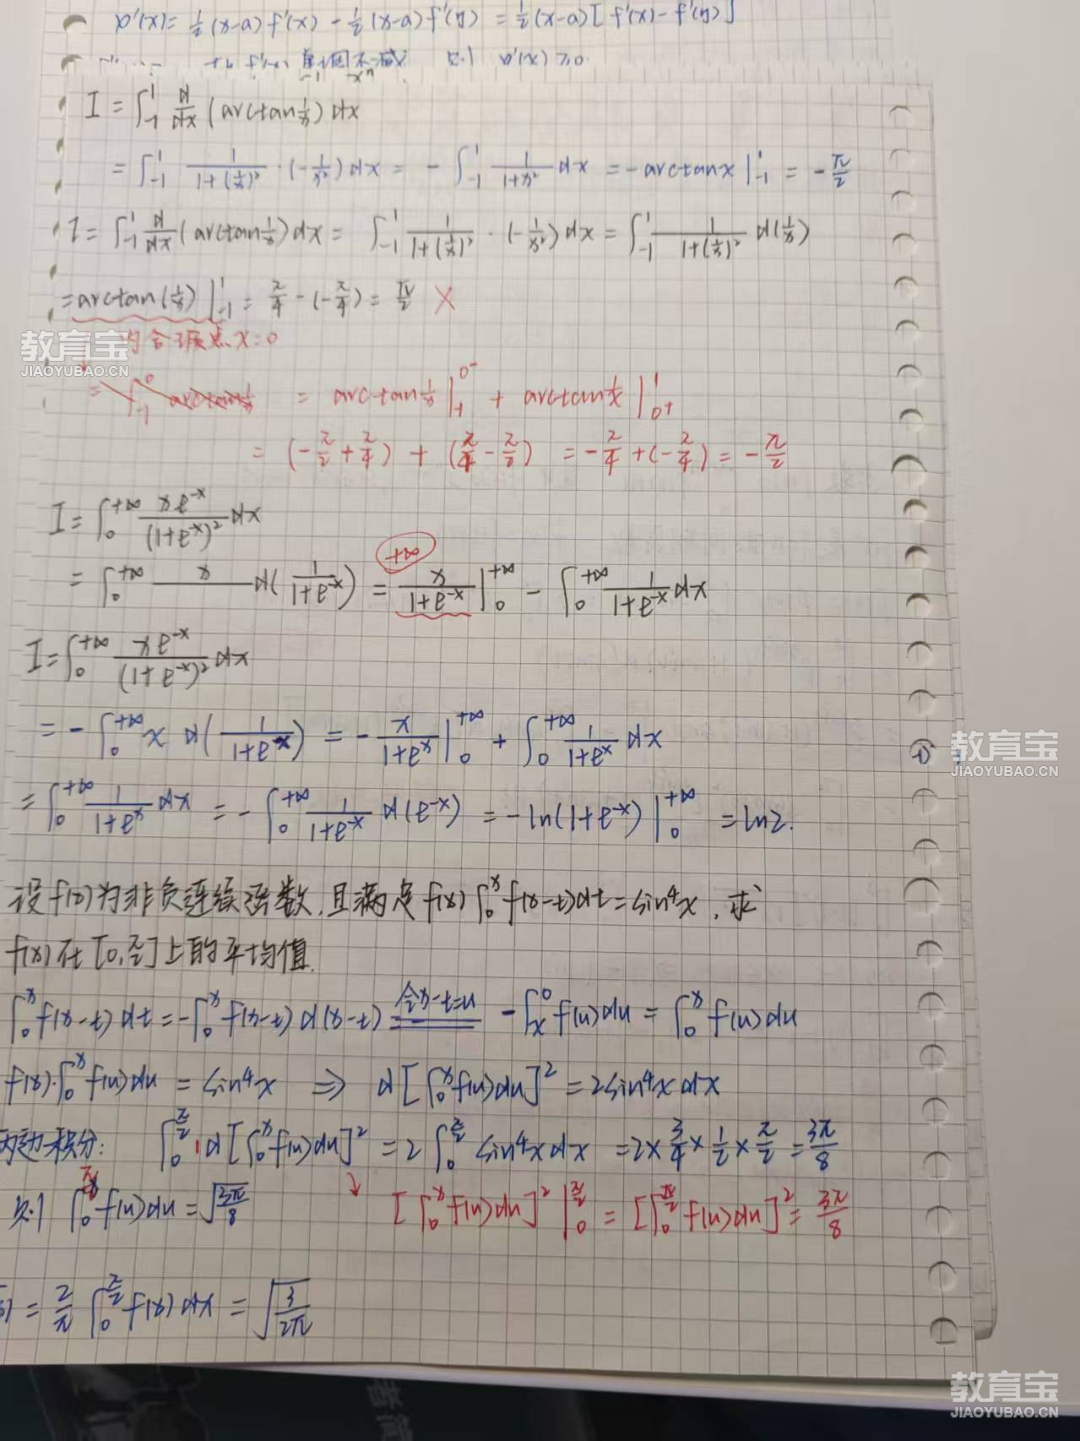 a'(x) = 1/2 (x-a) f'(x) - 1/2 (x-a) f'(y) = 1/2 (x-a) [ f'(x) - f'(y) ]
单调不减 a'(x) ≥ 0
I = ∫_{-1}^{1} d/dx (arctan 1/x) dx
= ∫_{-1}^{1} 1/(1+(1/x)²) · (-1/x²) dx = - ∫_{-1}^{1} 1/(1+x²) dx = -arctanx |_{-1}^{1} = -π/2
I = ∫_{-1}^{1} d/dx (arctan 1/x) dx = ∫_{-1}^{1} 1/(1+(1/x)²) · (-1/x²) dx = ∫_{-1}^{1} 1/(1+(1/x)²) d(1/x)
= arctan(1/x) |_{-1}^{1} = π/4 - (-π/4) = π/2 ×
内含瑕点 x=0
= arctan 1/x |_{-1}^{0-} + arctan 1/x |_{0+}^{1}
= (-π/2 + π/4) + (π/4 - π/2) = -π/4 + (-π/4) = -π/2
I = ∫_0^{+∞} xe^{-x}/(1+e^{-x})² dx
+∞
= ∫_0^{+∞} x d(1/(1+e^{-x})) = x/(1+e^{-x}) |_0^{+∞} - ∫_0^{+∞} 1/(1+e^{-x}) dx
I = ∫_0^{+∞} xe^{-x}/(1+e^{-x})² dx
= - ∫_0^{+∞} x d(1/(1+e^x)) = - x/(1+e^x) |_0^{+∞} + ∫_0^{+∞} 1/(1+e^x) dx
= ∫_0^{+∞} 1/(1+e^x) dx = - ∫_0^{+∞} 1/(1+e^{-x}) d(e^{-x}) = -ln(1+e^{-x}) |_0^{+∞} = ln2.
设f(x)为非负连续函数,且满足f(x)∫_0^x f(x-t)dt = sin⁴x, 求
f(x)在[0,π/2]上的平均值.
∫_0^x f(x-t)dt = -∫_0^x f(x-t)d(x-t) 令x-t=u -∫_x^0 f(u)du = ∫_0^x f(u)du
f(x)·∫_0^x f(u)du = sin⁴x ⇒ d[∫_0^x f(u)du]² = 2sin⁴x dx
两边积分: ∫_0^{π/2} 1 d[∫_0^x f(u)du]² = 2∫_0^{π/2} sin⁴x dx = 2×3/4×1/2×π/2 = 3π/8
则 ∫_0^{π/2} f(u)du = √(3π/8) ↘ [∫_0^x f(u)du]² |_0^{π/2} = [∫_0^{π/2} f(u)du]² = 3π/8
= 2/π ∫_0^{π/2} f(x)dx = √(3/2π)
教育宝
JIAOYUBAO.CN
教育宝
JIAOYUBAO.CN
教育宝
JIAOYUBAO.CN